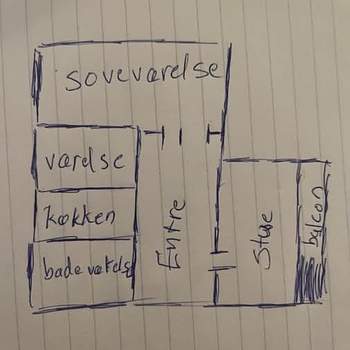 sovevarelse
værelse
køkken
badeværelse
Entre
Stue
balcon